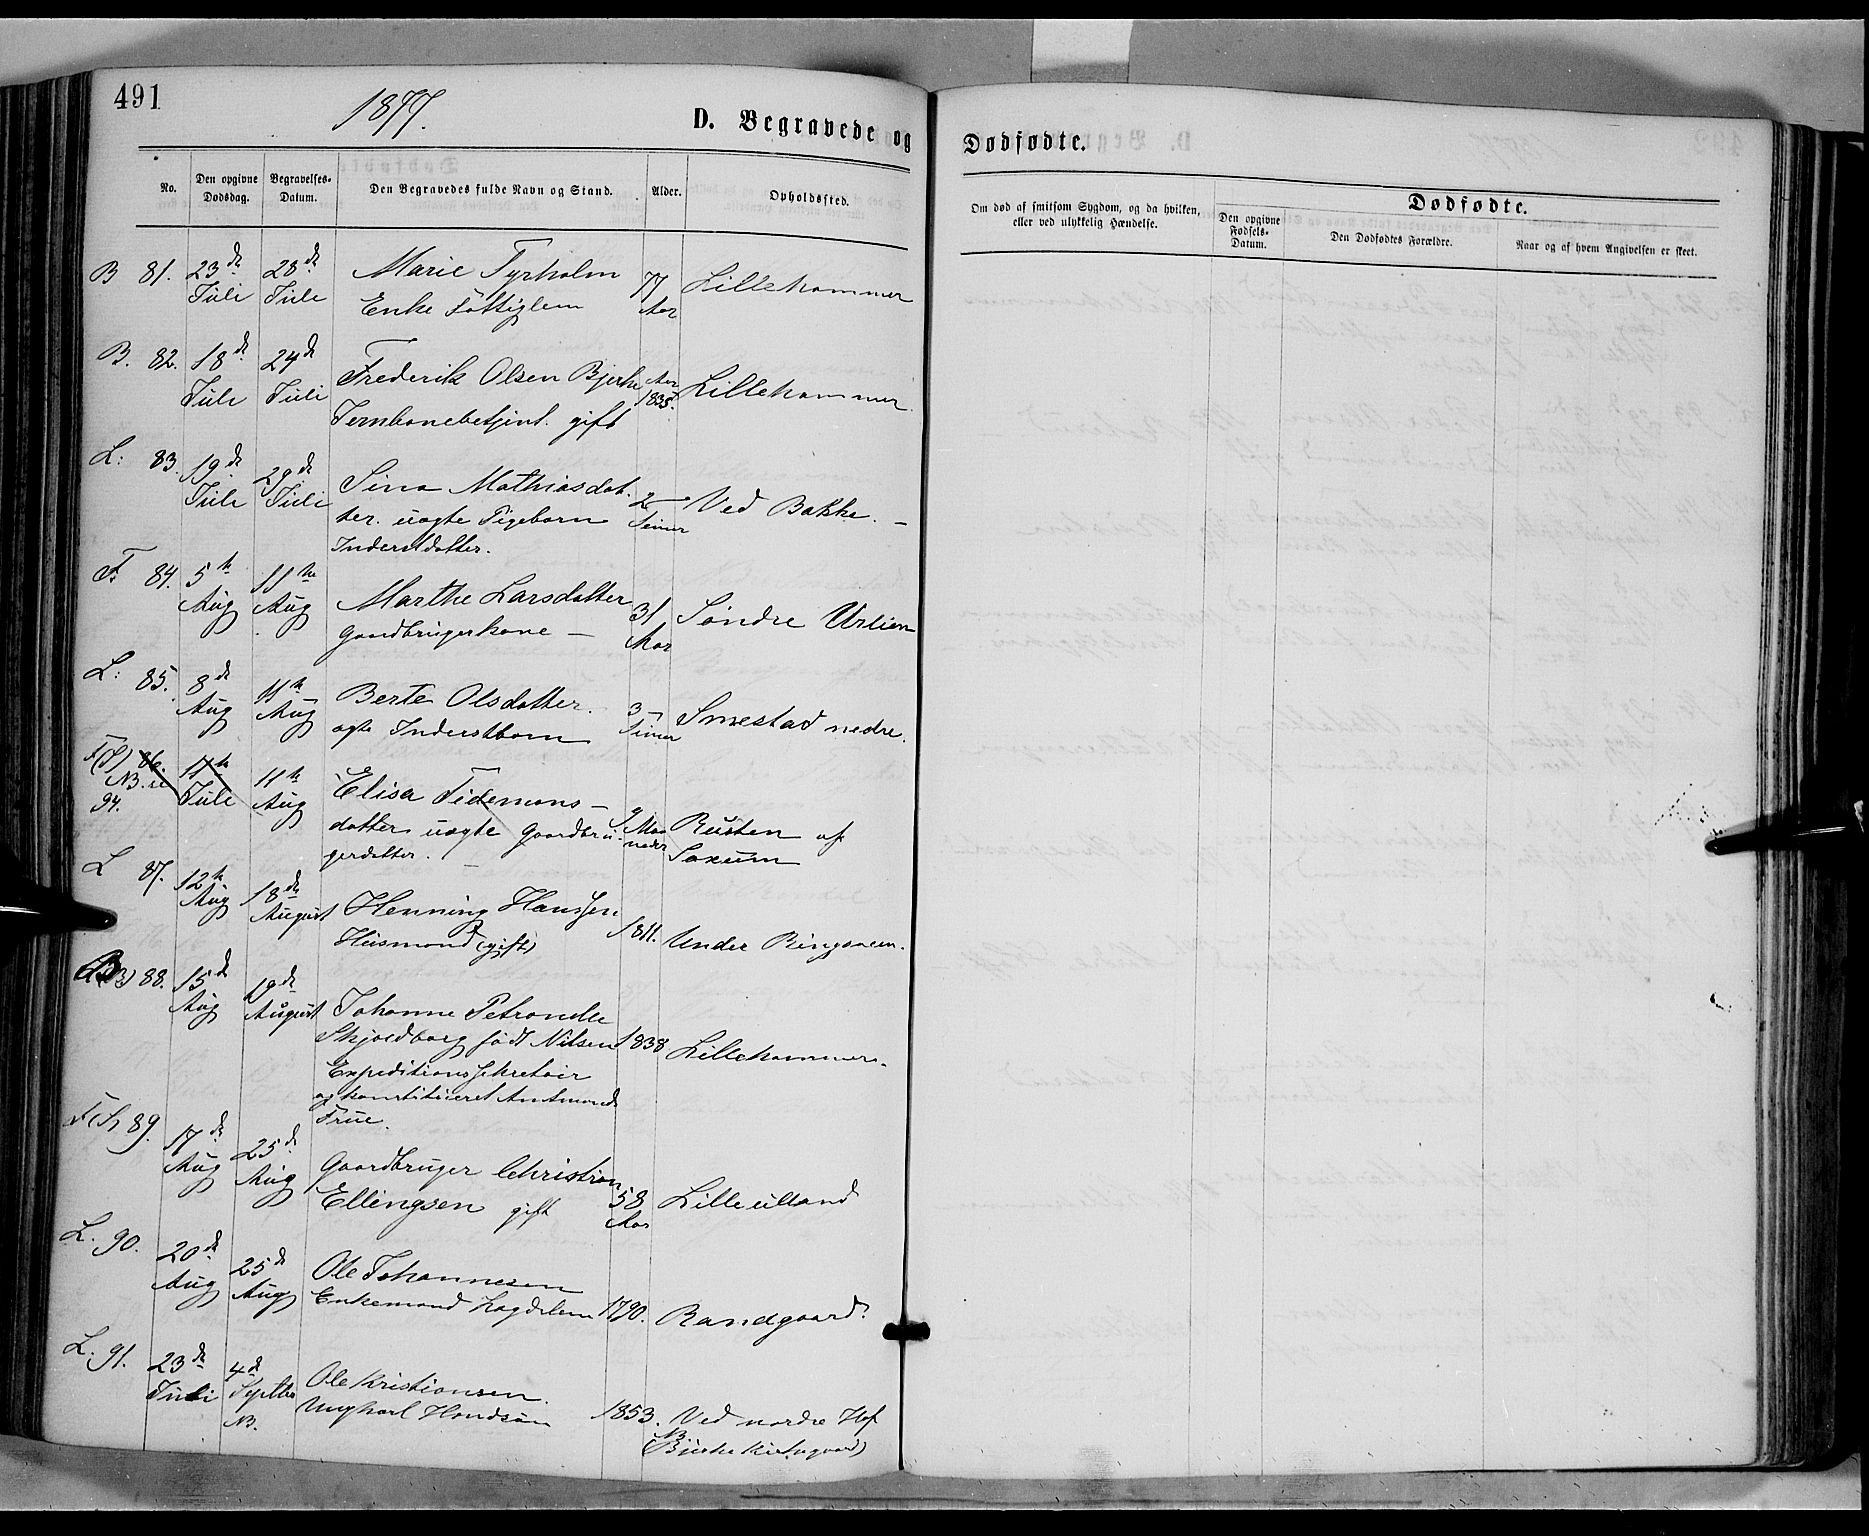 491
1877.
D. Begravede og
Dødfødte.
No.
Den opgivne Dødsdag.
Begravelses-Datum.
Den Begravedes fulde Navn og Stand.
Alder.
Opholdssted.
Om død af smitsom Sygdom, og da hvilken, eller ved ulykkelig Hændelse.
Dødfødte.
Den opgivne Fødsels-Datum.
Den Dødfødtes Forældre.
Naar og af hvem Angivelsen er skeet.
B 81. 23de Juli 28de Juli Marie Tyrholm 77 Aar Lillehammer
Enke Fattiglem
B. 82. 18de Juli 24de Juli Frederik Olsen Bjerke Aar 1835. Lillehammer.
Jernbanebetjent. gift
L: 83. 19de Juli 29de Juli Sina Mathiasdat- 2 Timer Ved Bakke. –
ter. uægte Pigebarn
Inderstdatter.
F. 84. 5te Aug 11te Aug Marthe Larsdatter 31 Aar Søndre Urlien
Gaardbrugerkone –
L: 85. 8de Aug 11te Aug Berte Olsdatter. 3 Timer Smestad nedre.
ægte Inderstbarn
F(S) 86. NB. se 94. 17te Juli 11te Aug Elisa Tidemans- 9 Maaneder Rusten af Saxum
datter uægte Gaardbru-
gerdatter. –
L 87. 12te Aug 18de August Henning Hanssen 1811. Under Ringsveen.
Husmand (gift)
B 88. 15de Aug 19de August Johanne Petronelle
Skjoldborg født Nilsen 1838 Lillehammer.
Expeditionssekretair
og konstitueret Amtmands
Frue.
F(S) 89. 17de Aug 25de Aug Gaardbruger Christian
Ellingsen gift 58 Aar Lilleulland
L. 90. 20de Aug 25de Aug Ole Johannesen
Enkemand Lægdslem 1790. Randgaard.
L. 91. 23de Juli 4de Septbr NB. Ole Kristiansen.
Ungkarl 1853. Ved nordre Hof
NB (Bjerke Kirkegaard)